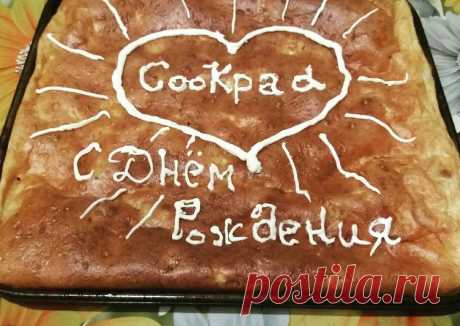 Cookpad
С Днём
Рождения
postila.ru